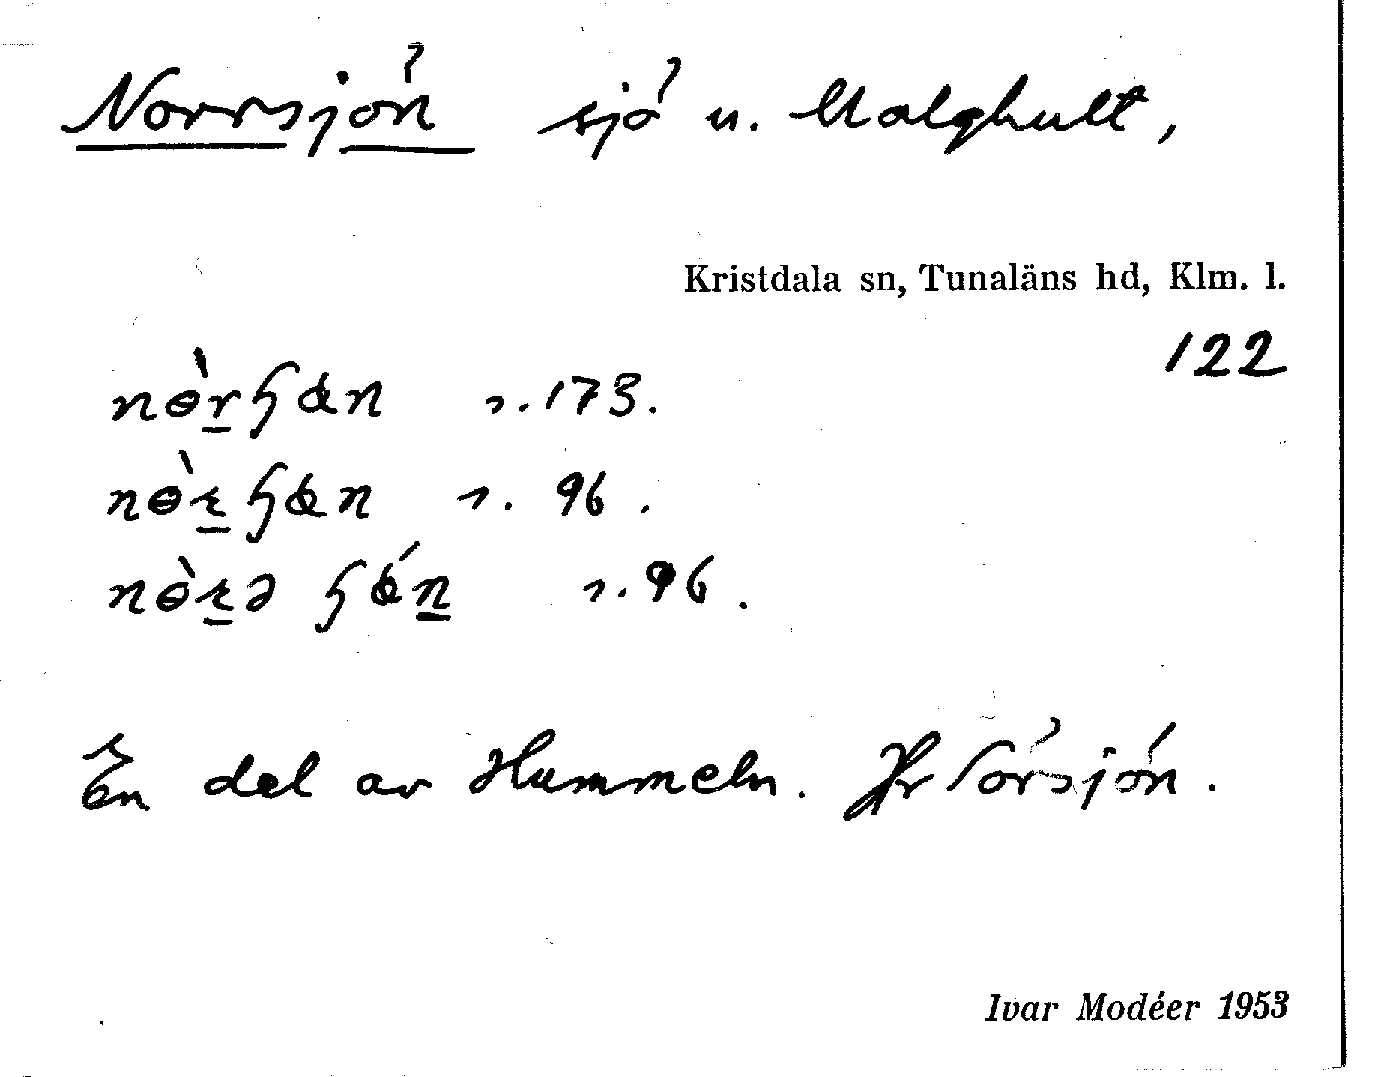 Norrsjön sjö u. Malghult,
Kristdala sn, Tunaläns hd, Klm. l.
122
nɵ̀r̠ɧæn r. 173.
r. 96.
r. 96.
En del av Hummeln. Jfr Sörsjön.
Ivar Modéer 1953